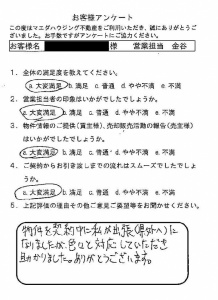 お客様アンケート
この度はマニダハウジング不動産をご利用いただき、誠にありがとうござ
いました。お手数ですがアンケートにご協力ください。
お客様名 様 営業担当 金谷
1. 全体の満足度を教えてください。
a.大変満足 b.満足 c.普通 d.やや不満 e.不満
2. 営業担当者の印象はいかがでしたでしょうか。
a.大変満足 b.満足 c.普通 d.やや不満 e.不満
3. 物件情報のご提供（買主様）、売却販売活動の報告（売主様）
はいかがでしたでしょうか。
a.大変満足 b.満足 c.普通 d.やや不満 e.不満
4. ご契約からお引き渡しまでの流れはスムーズでしたでしょ
うか。
a.大変満足 b.満足 c.普通 d.やや不満 e.不満
5. 上記評価の理由その他ご意見ご要望等をお聞かせください。
物件を契約中に私が出張（県外へ）に
なりましたが、色々と対応していただき
助かりました。ありがとうございます。